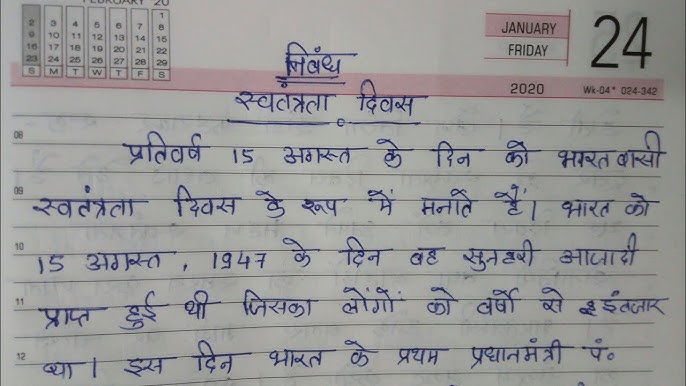 FEBRUARY 20
1
2 3 4 5 6 7 8
9 10 11 12 13 14 15
16 17 18 19 20 21 22
23 24 25 26 27 28 29
S M T W T F S
JANUARY
FRIDAY
24
2020 Wk-04* 024-342
निबंध
स्वतंत्रता दिवस
08 प्रतिवर्ष 15 अगस्त के दिन को भारत बासी
09 स्वतंत्रता दिवस के रूप में मनाते हैं। भारत को
10 15 अगस्त, 1947 के दिन वह सुनहरी आजादी
11 प्राप्त हुई थी जिसका लोंगों को वर्षो से इंतजार
12 था। इस दिन भारत के प्रथम प्रधानमंत्री पं॰